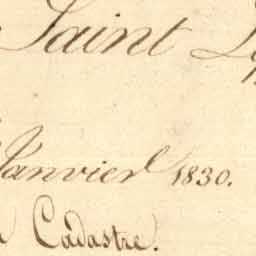 Saint
Janvier 1830.
Cadastre.